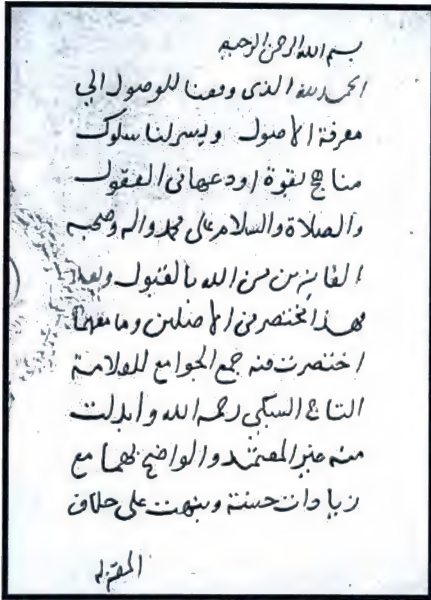 بسم الله الرحمن الرحيم
الحمد لله الذى وفقنا للوصول الى
معرفة الاصول ويسر لنا سلوك
مناهج بقوة اودعها فى العقول
والصلاة والسلام على محمد واله وصحبه
الفايزين من الله بالقبول وبعد
فهذا مختصر فى الاصلين وما معهما
اختصرت فيه جمع الجوامع للعلامة
التاج السبكى رحمه الله وابدلت
منه غير المعتمد والواضح بهما مع
زيادات حسنة ونبهت على خلاف
المعتزله